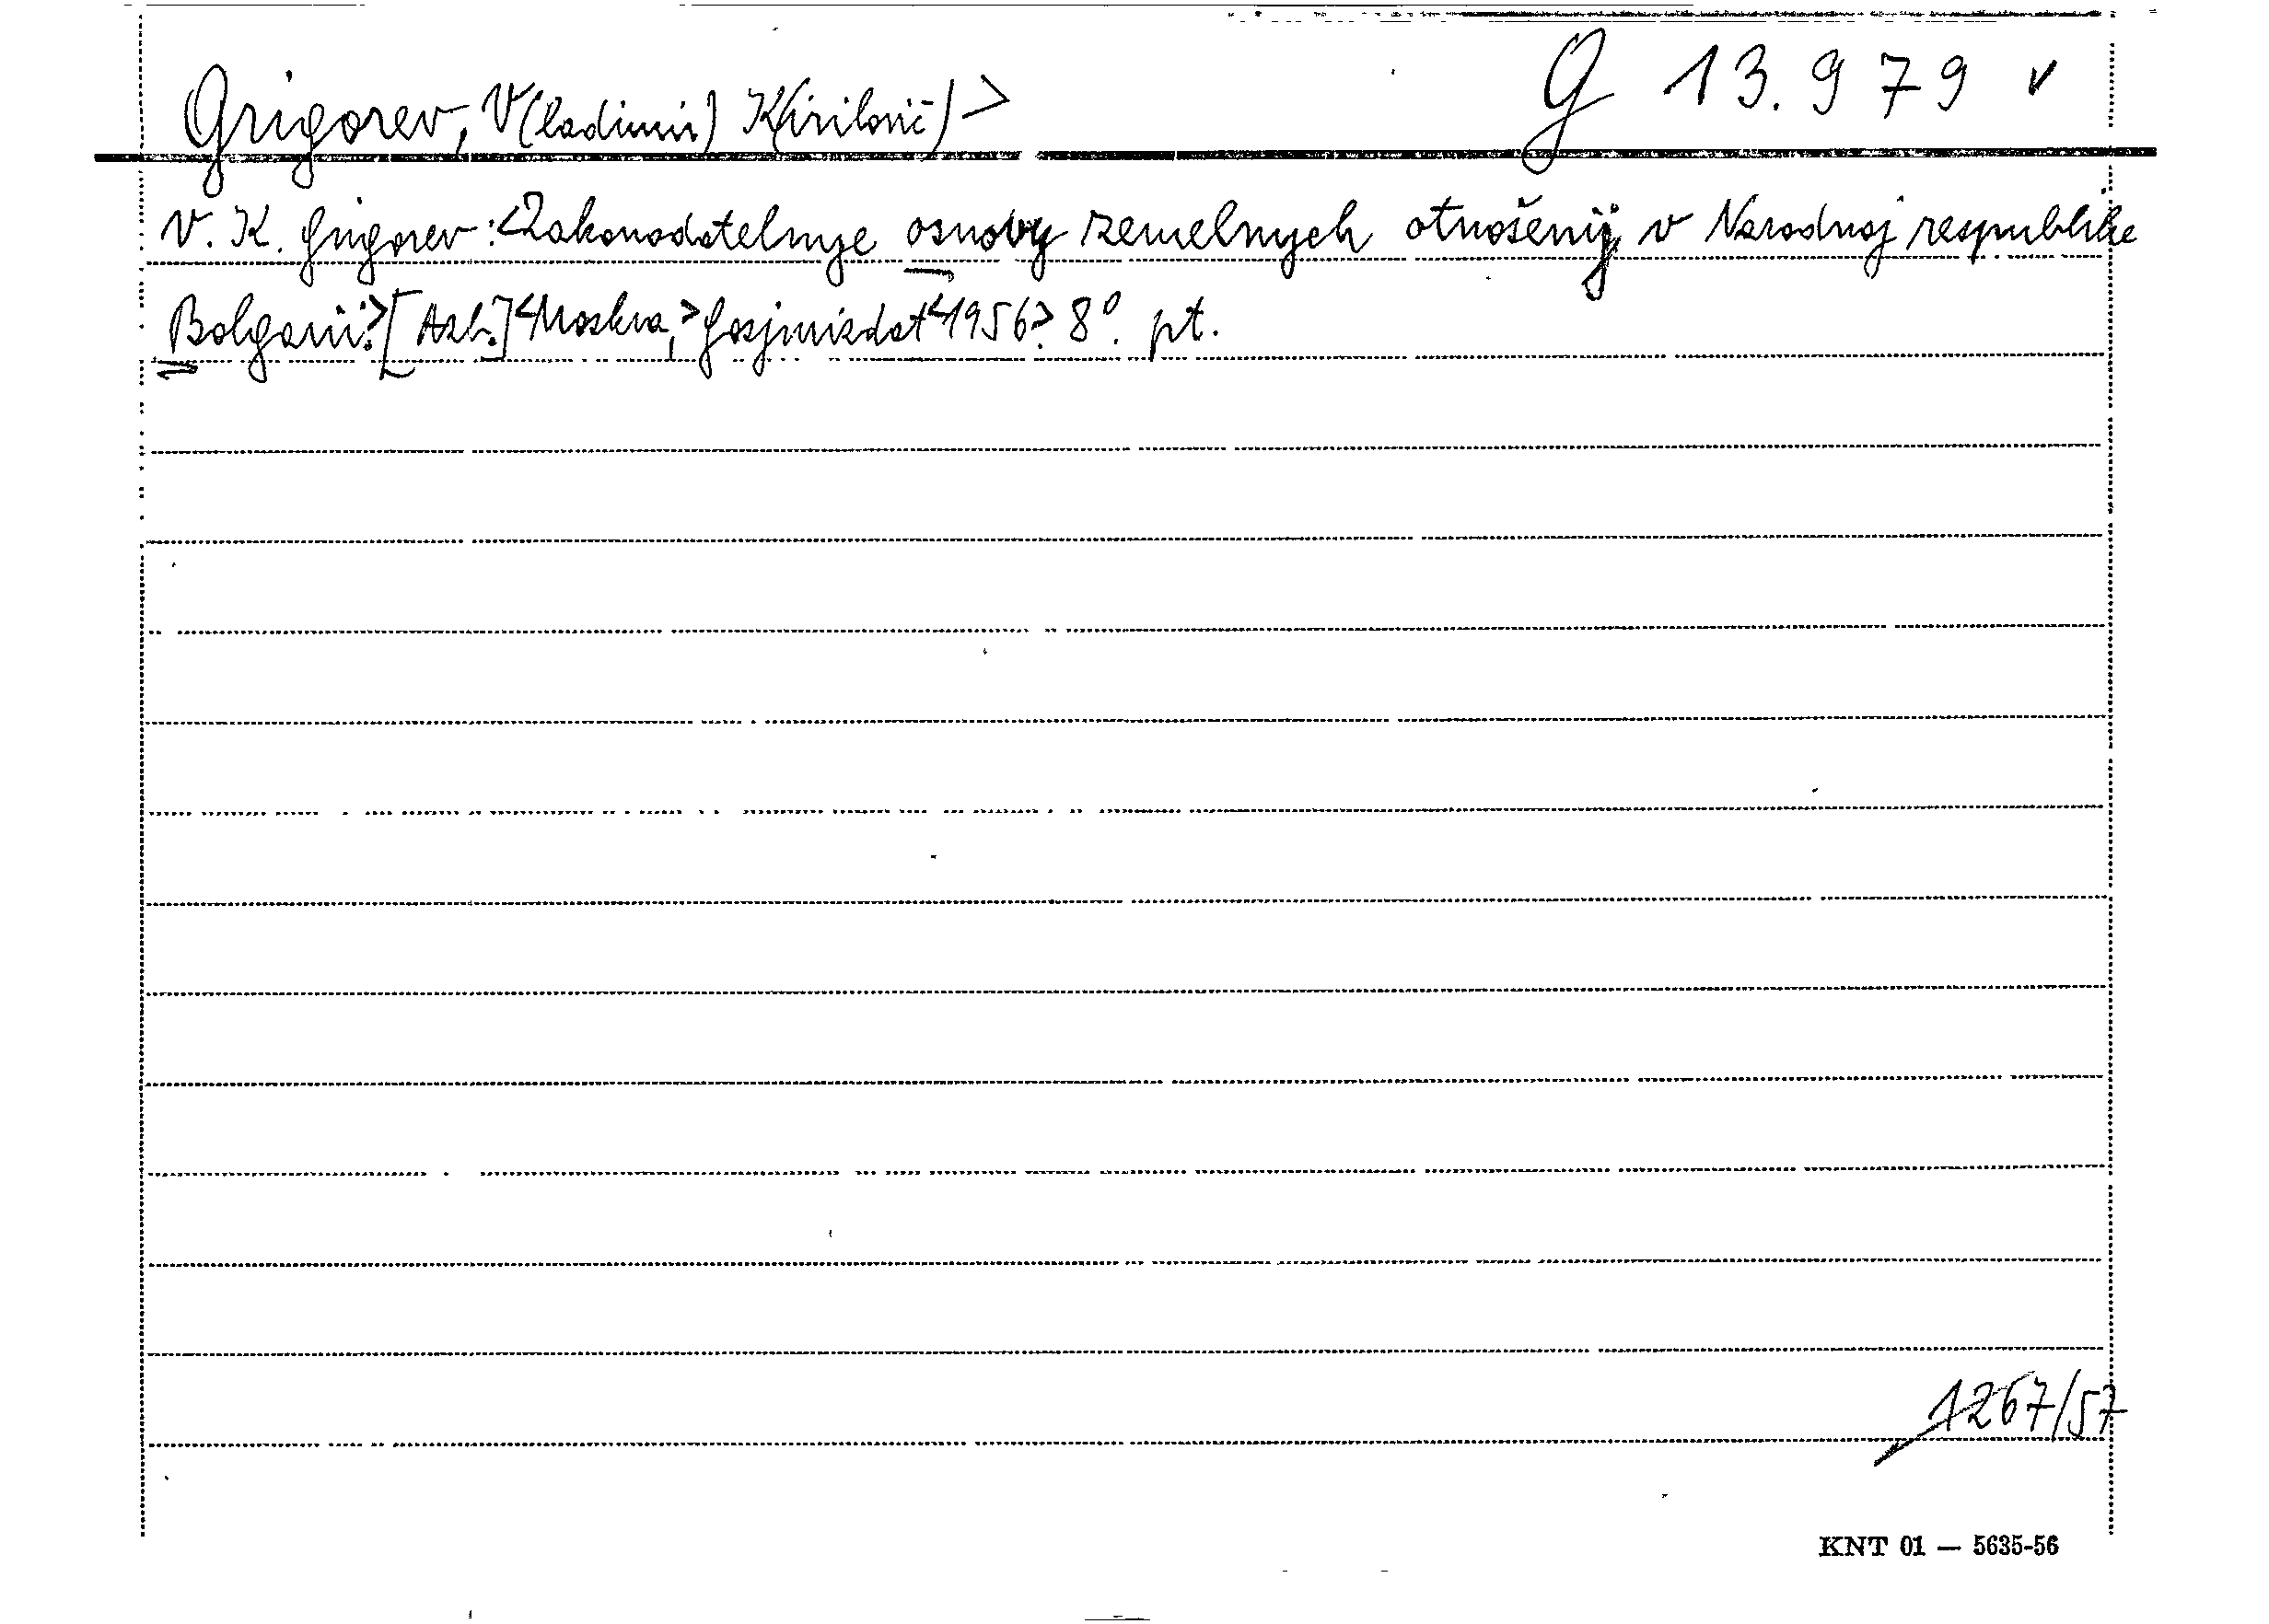 Grigorev, V(ladimir) K(irilovič) >
G 13.979 v
V. K. Grigorev: <Zakonodatelnye osnovy zemelnych otnošenij v Narodnoj respublike
Bolgarii.> [Azb.] <Moskva,> Gosjurizdat <1956.> 8°. pt.
1267/57
KNT 01 — 5635-56